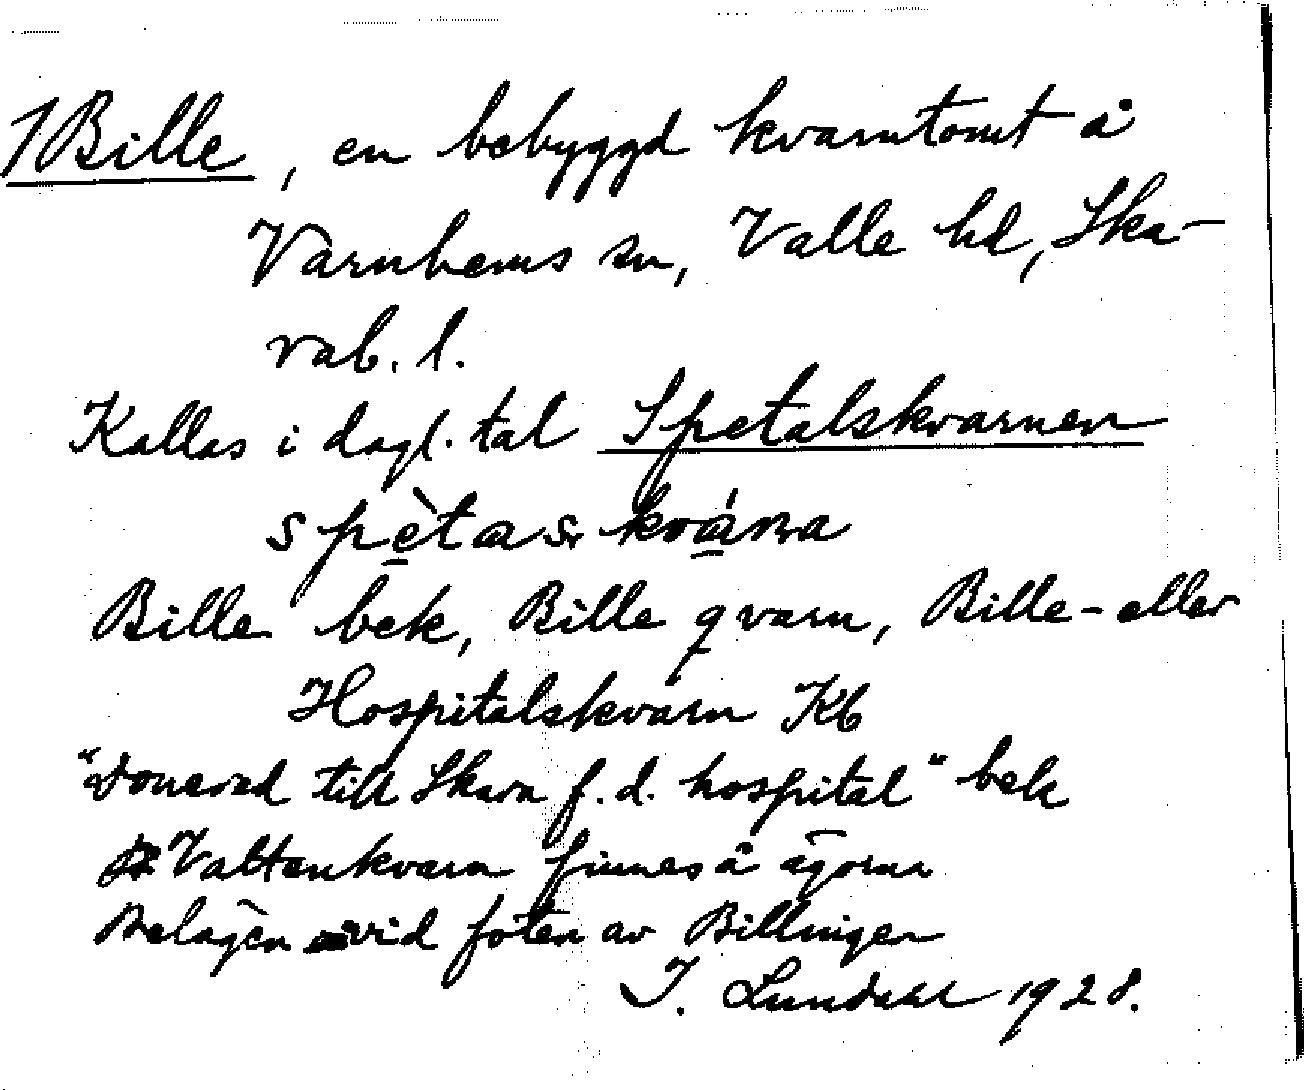 1 Bille, en bebyggd kvarntomt å
Varnhems sn, Valle hd, Ska-
rab. l.
Kallas i dagl. tal Spetalskvarnen
spètas kvárna
Bille bek, Bille qvarn, Bille- eller
Hospitalskvarn Kb
"Donerad till Skara f.d. hospital" bek
Vattenkvarn finnes å ägorna
Belägen vid foten av Billingen
I. Lundahl 1928.